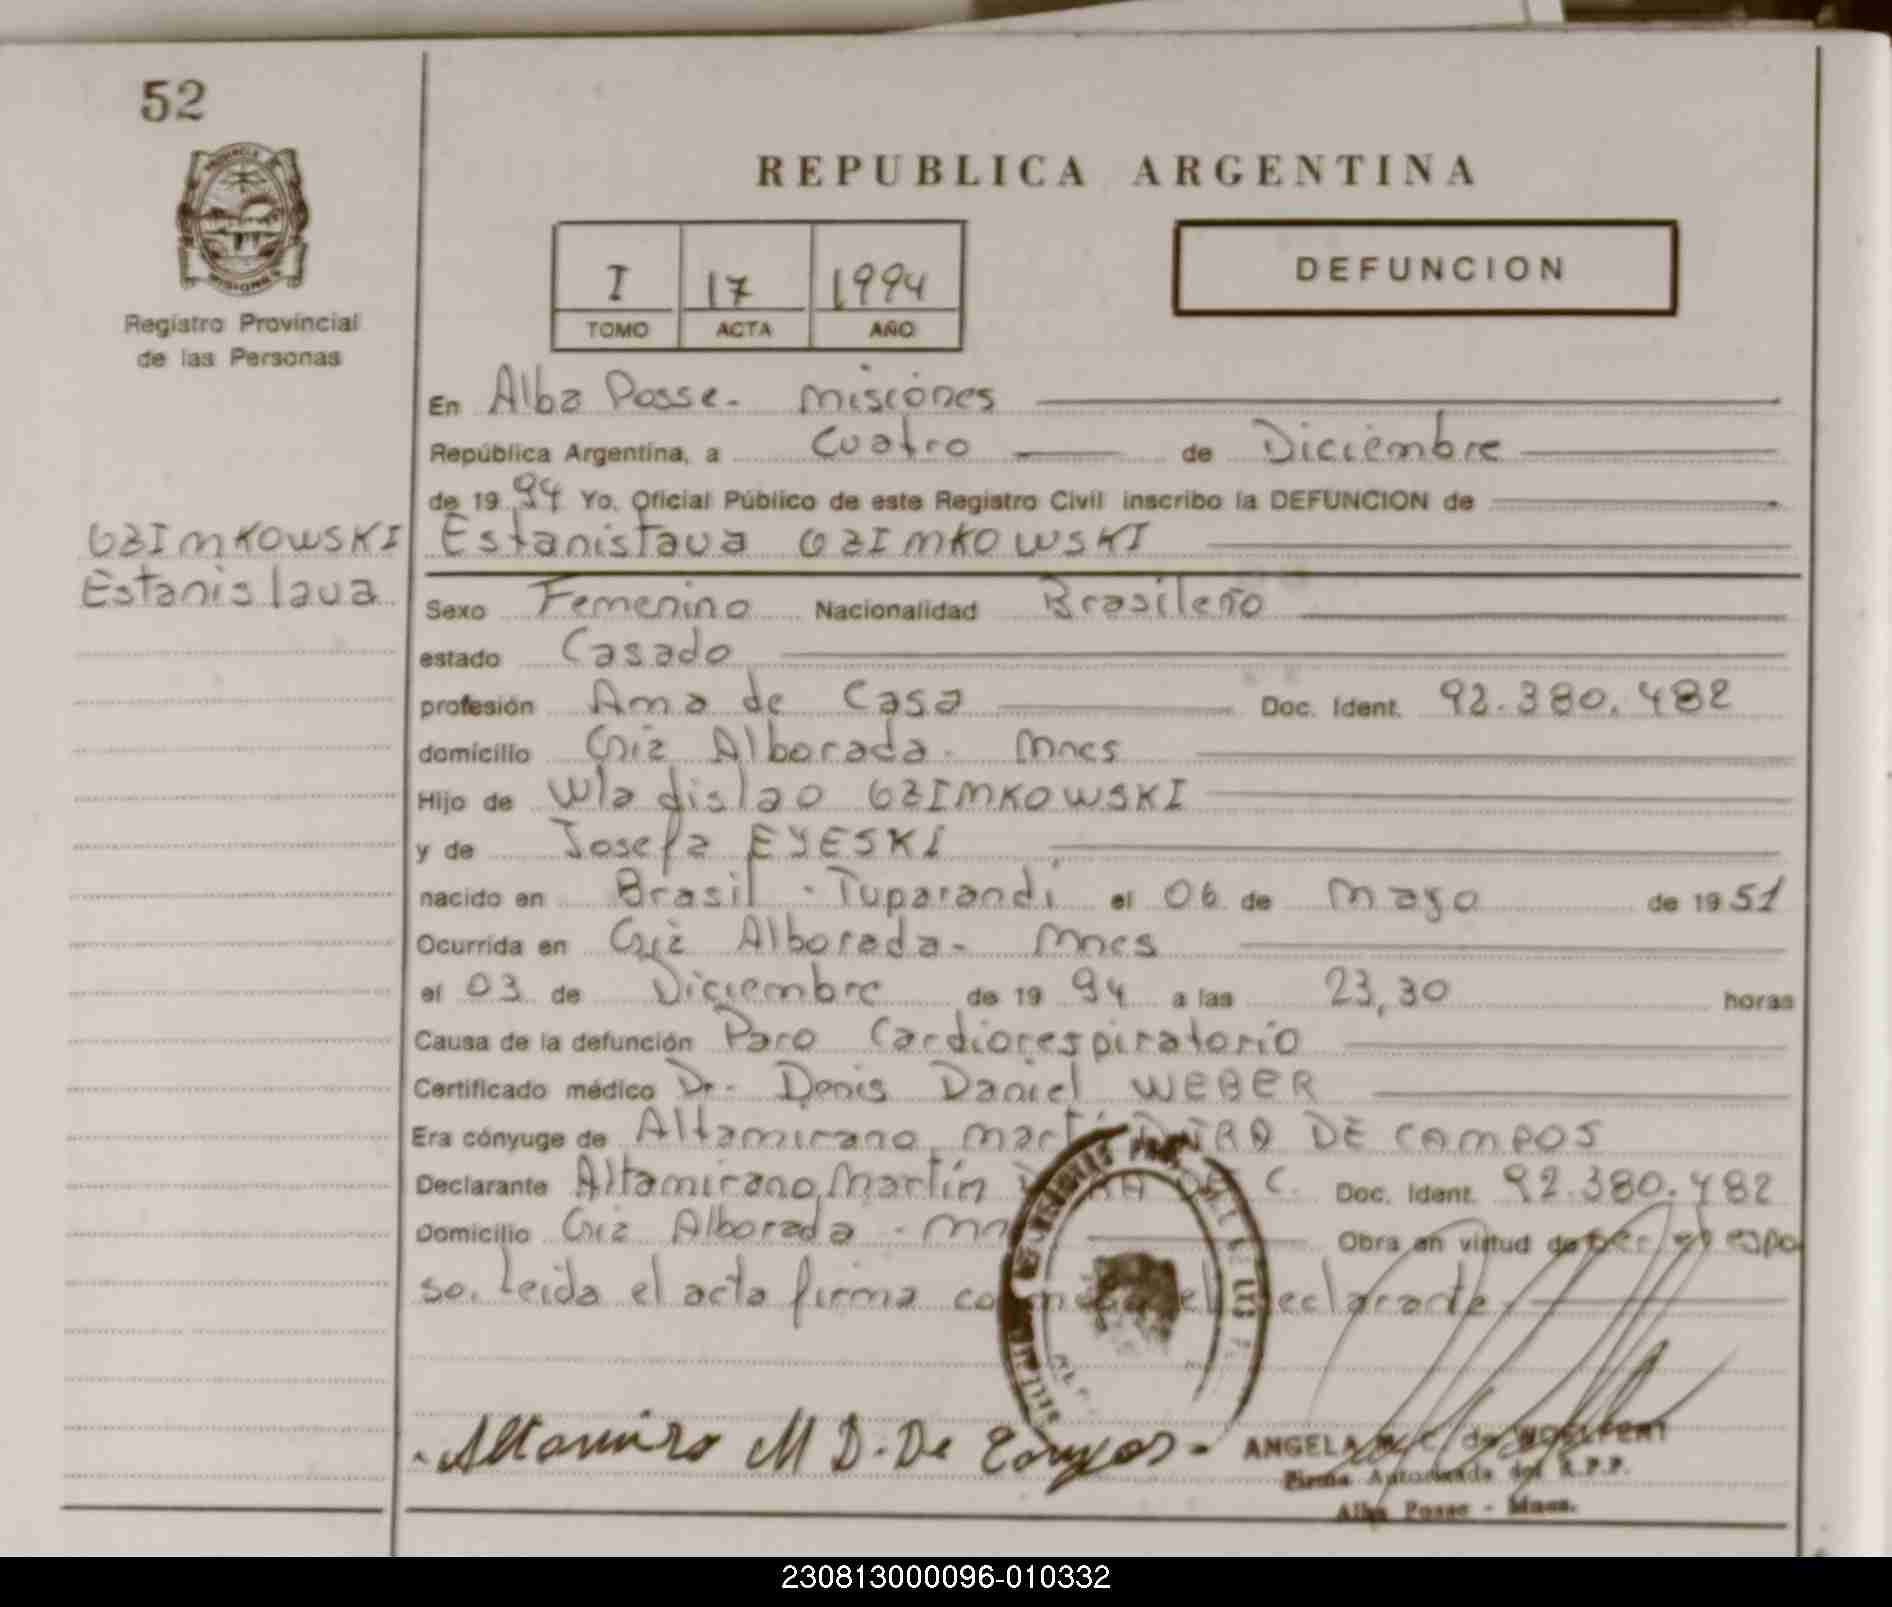 52
REPUBLICA ARGENTINA
Registro Provincial
de las Personas
I 17 1994
TOMO ACTA AÑO
DEFUNCION
En Alba Posse - Misiones
República Argentina, a Cuatro de Diciembre
de 19 94 Yo, Oficial Público de este Registro Civil inscribo la DEFUNCION de
GZIMKOWSKI
Estanislava
Estanislava GZIMKOWSKI
Sexo Femenino Nacionalidad Brasileño
estado Casado
profesión Ama de Casa Doc. Ident. 92.380.482
domicilio Alborada - Mnes
Hijo de Wladislao GZIMKOWSKI
y de Josefa EYESKI
nacido en Brasil - Tuparandi el 06 de Mayo de 19 51
Ocurrida en Alborada - Mnes
el 03 de Diciembre de 19 94 a las 23,30 horas
Causa de la defunción Paro Cardiorespiratorio
Certificado médico Dr. Denis Daniel WEBER
Era cónyuge de Altamirano DE CAMPOS
Declarante Altamirano Martín C. Doc. Ident. 92.380.482
Domicilio Alborada - Obra en virtud de ser el espo
so. Leida el acta firma el declarante
Altamiro M D. De Campos -
ANGELA
Firma Autorizada del R.P.P.
Alba Posse - Mnes.
230813000096-010332